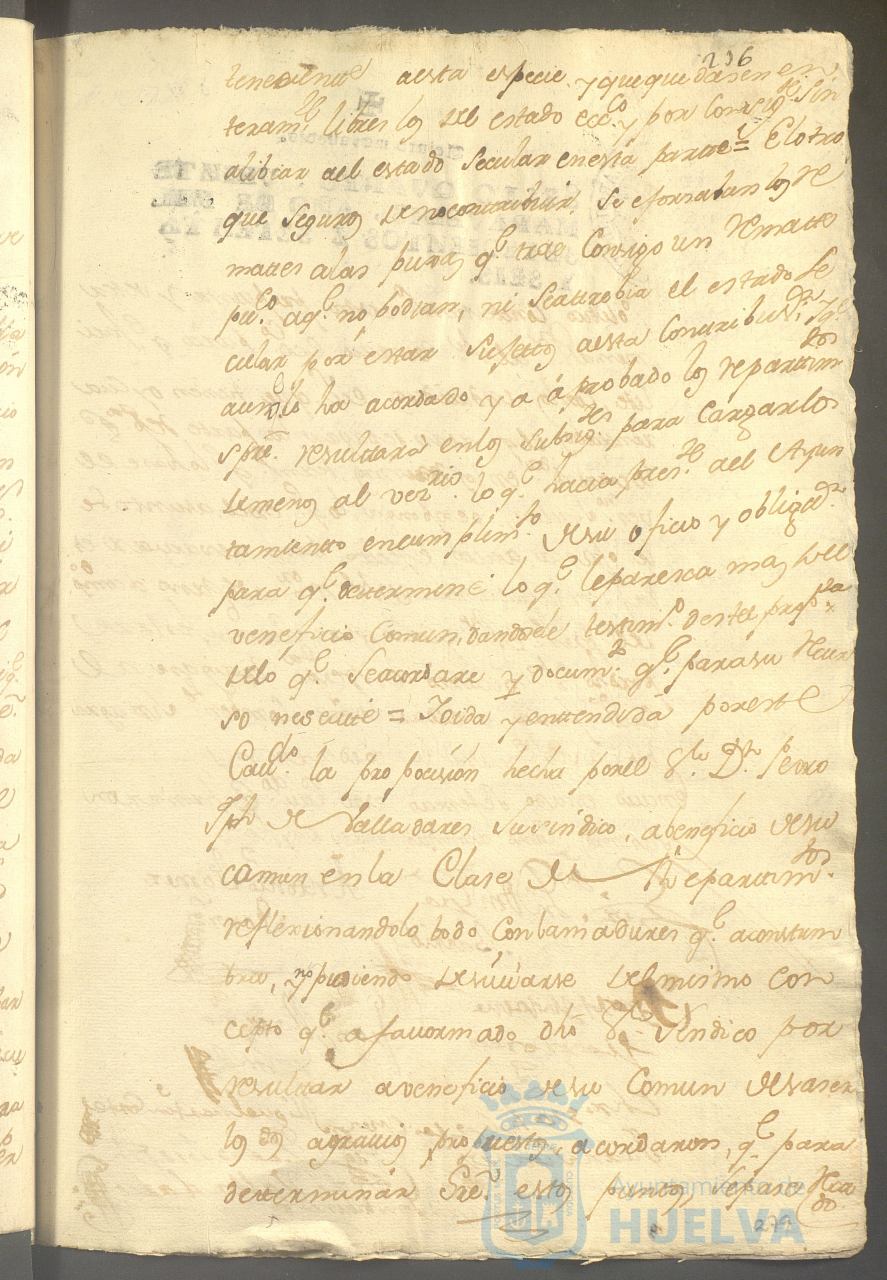 236
teneciente aesta especie y que quedasen en
teram.te libres los del estado ecc.co y por Consig.te sin
alibiar ael estado Secular en esta parte = El otro
que seguros de no contribuir, se esforsaban los Re
mates a las puxas q.e trae Consigo un Remate
pu.co aq.e no podian, ni Seatrebia el estado Se
cular por estar Sujetos aesta Contribu.on
aun lo ha acordado y a aprobado los repartim.tos
resultara en los para Cargarlos
demenos al ver lo q.e hacia pres.te ael Ayun
tamiento encumplim.to desu oficio y obligaz.n
para q.e determine lo q.e leparesca mas
veneficio Comun, dandole testim.o deste
dello q.e Seacordare y docum.to q.e para su Recur
so nesecite = Y oida y entendida por este
Cav.do la propocision hecha por el S.r D.n Pedro
Jph de Valladares su sindico, abeneficio desu
comun en la Clase de Repartim.tos
reflexionandolo todo Con la madures q.e acostum
bra, y no pudiendo desviarse del mismo con
cepto q.e a formado dho S.r Sindico por
resultar aveneficio desu Comun
los dos agravios propuestos, acordaron, q.e para
determinar sre. estos puntos se
Ayuntamiento de
HUELVA